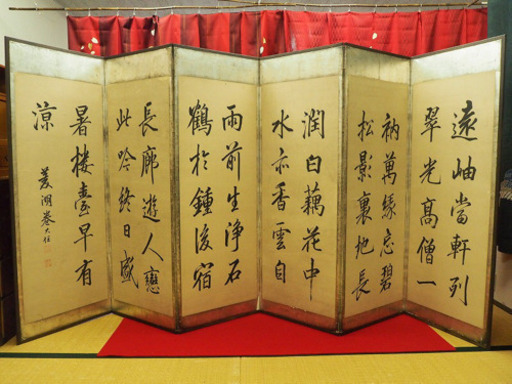 遠岫當軒列
翠光高僧一
衲萬緣忘碧
松影裏地長
潤白藕花中
水亦香雲自
雨前生浄石
鶴於鍾後宿
長廊遊人戀
此吟終日盛
暑楼臺早有
涼
菱湖巻大任